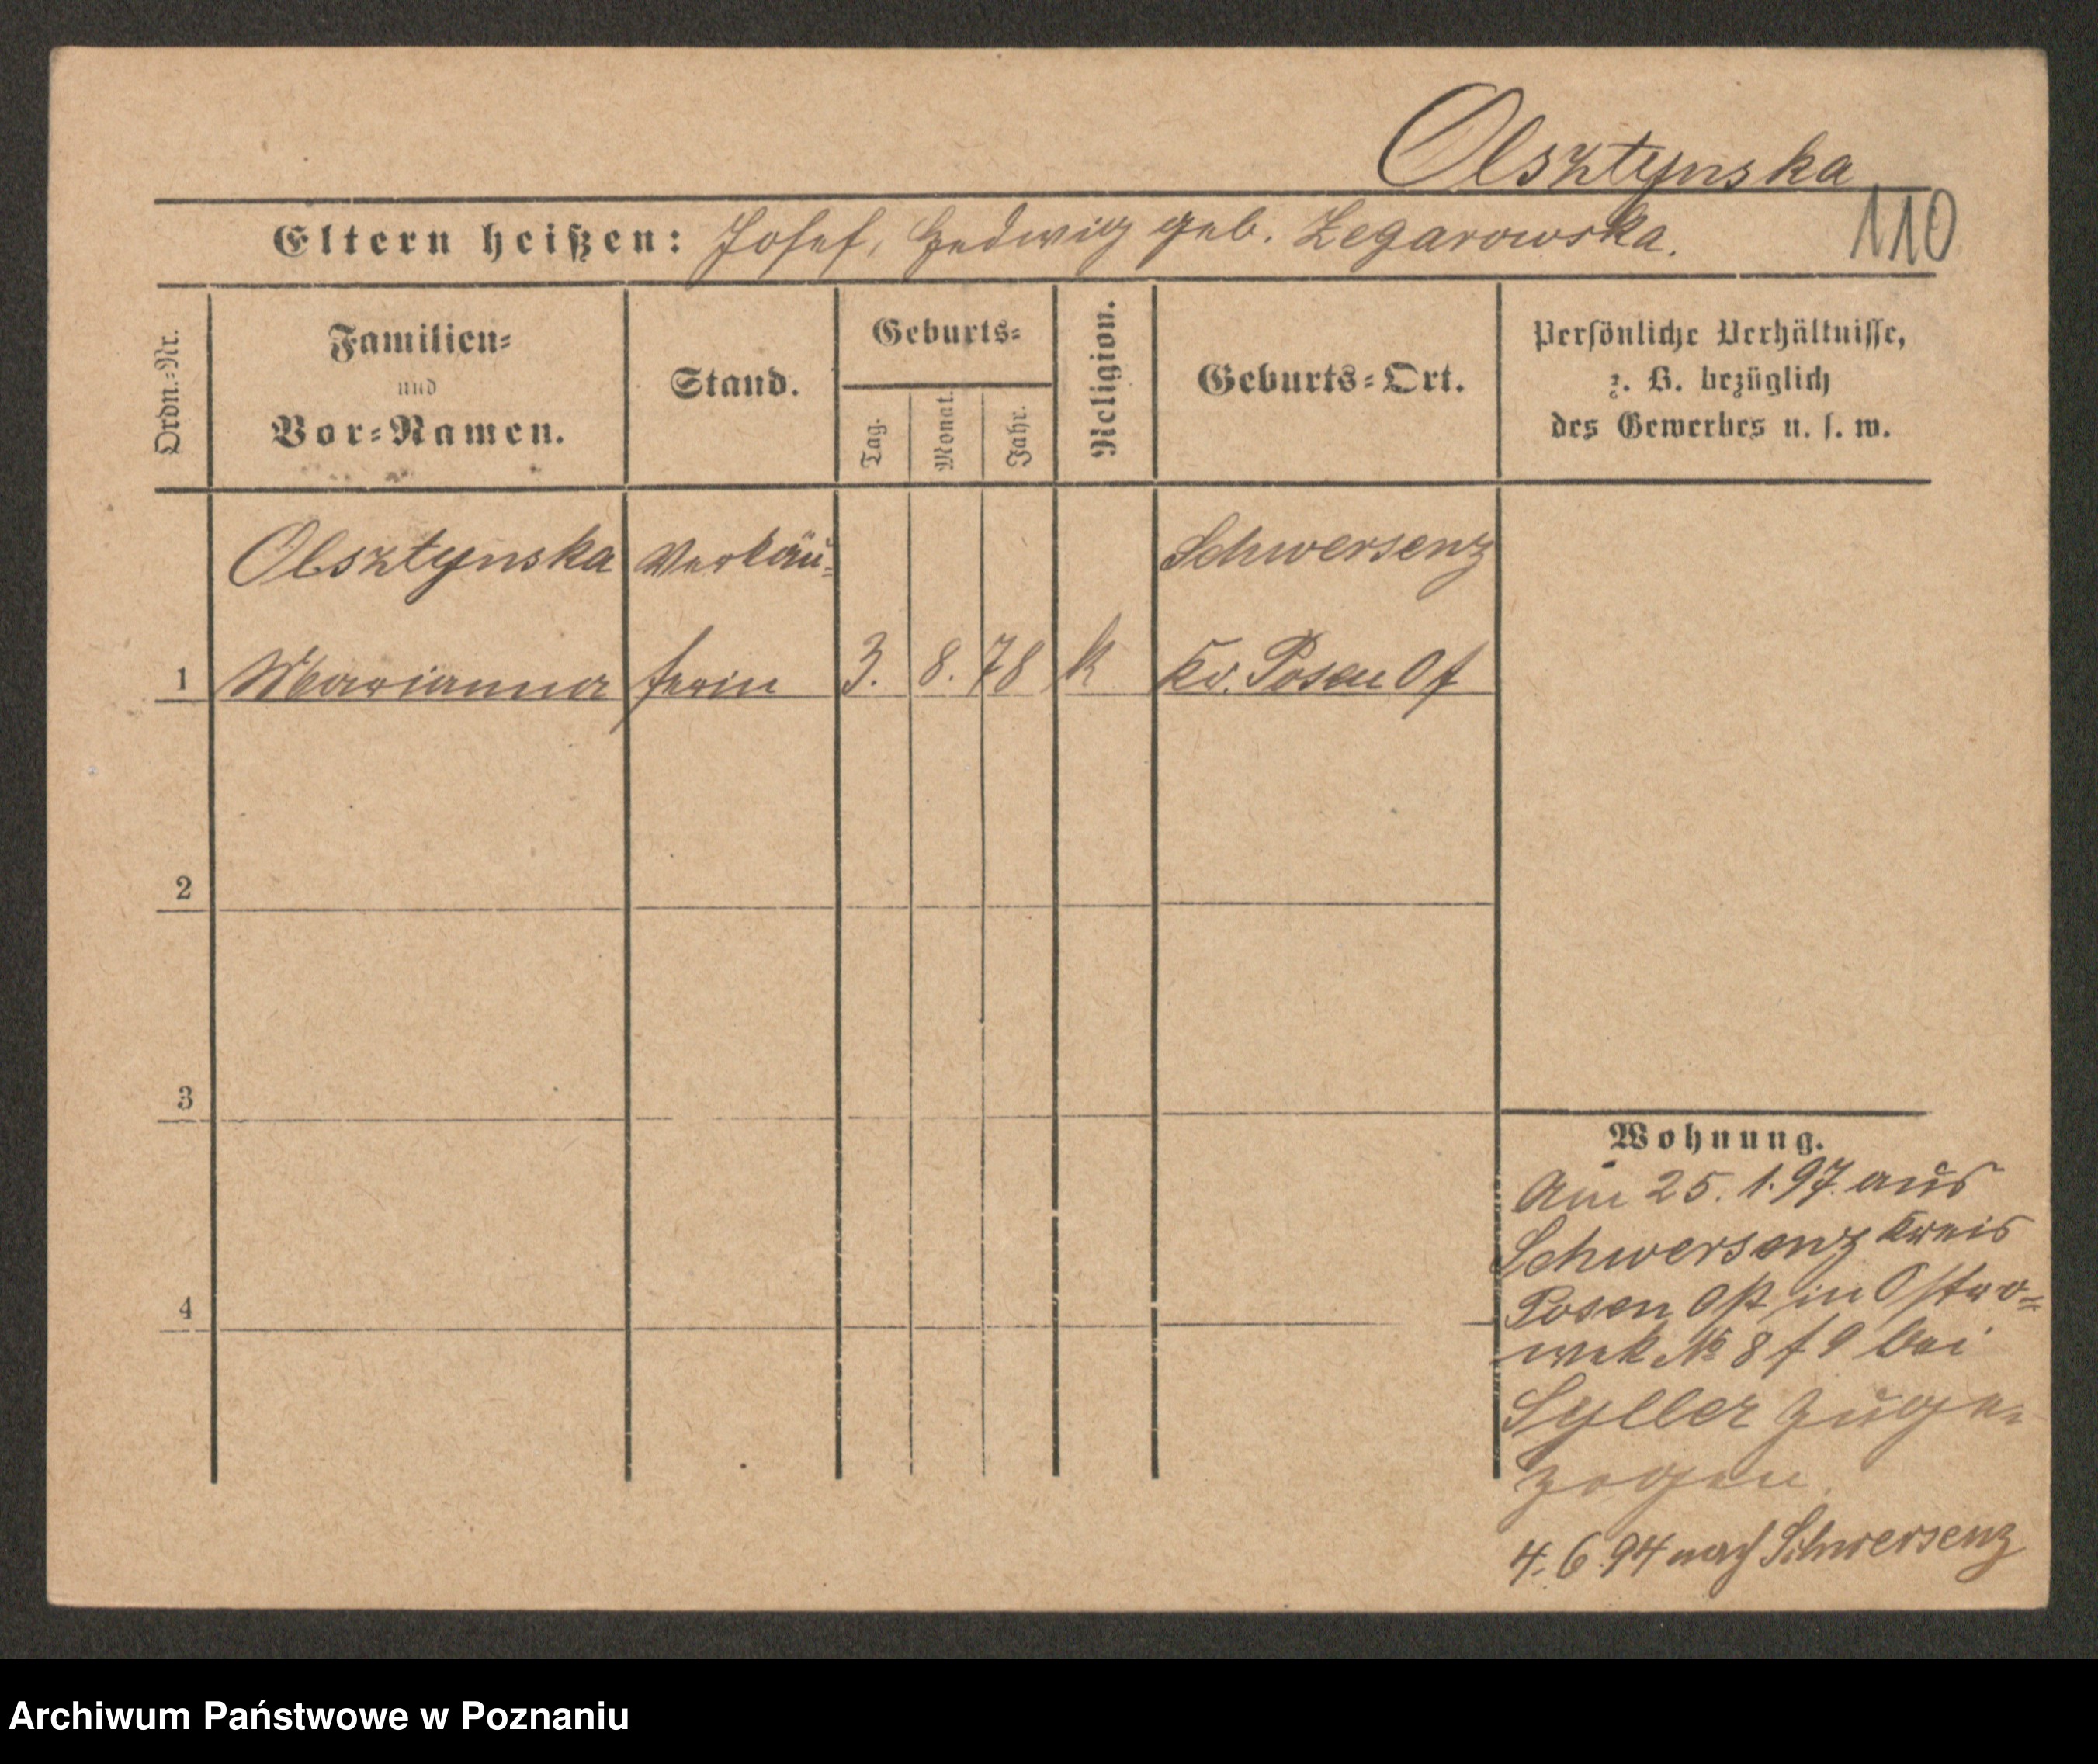 Olsztynska
110
Eltern heißen: Josef, Hedwig geb. Zegarowska.
Ordn.-Nr.
Familien-
und
Vor-Namen.
Stand.
Geburts-
Tag.
Monat.
Jahr.
Religion.
Geburts-Ort.
Persönliche Verhältnisse,
z. B. bezüglich
des Gewerbes u. s. w.
Olsztynska Verkäu- Schwersenz
1 Marianna ferin 3. 8. 78 k Kr. Posen O f
2
3
4
Wohnung.
Am 25. 1. 97. aus
Schwersenz Kreis
Posen Ost in Ostro-
wek No 8 f 9 bei
Syller zuge-
zogen.
4. 6. 94 nach Schwersenz
Archiwum Państwowe w Poznaniu